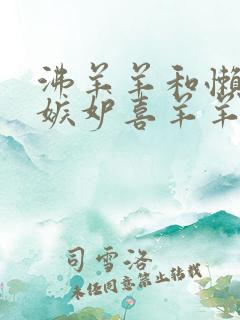 沸羊羊和懒
嫉妒喜羊羊
司雪洛
未经同意禁止转载